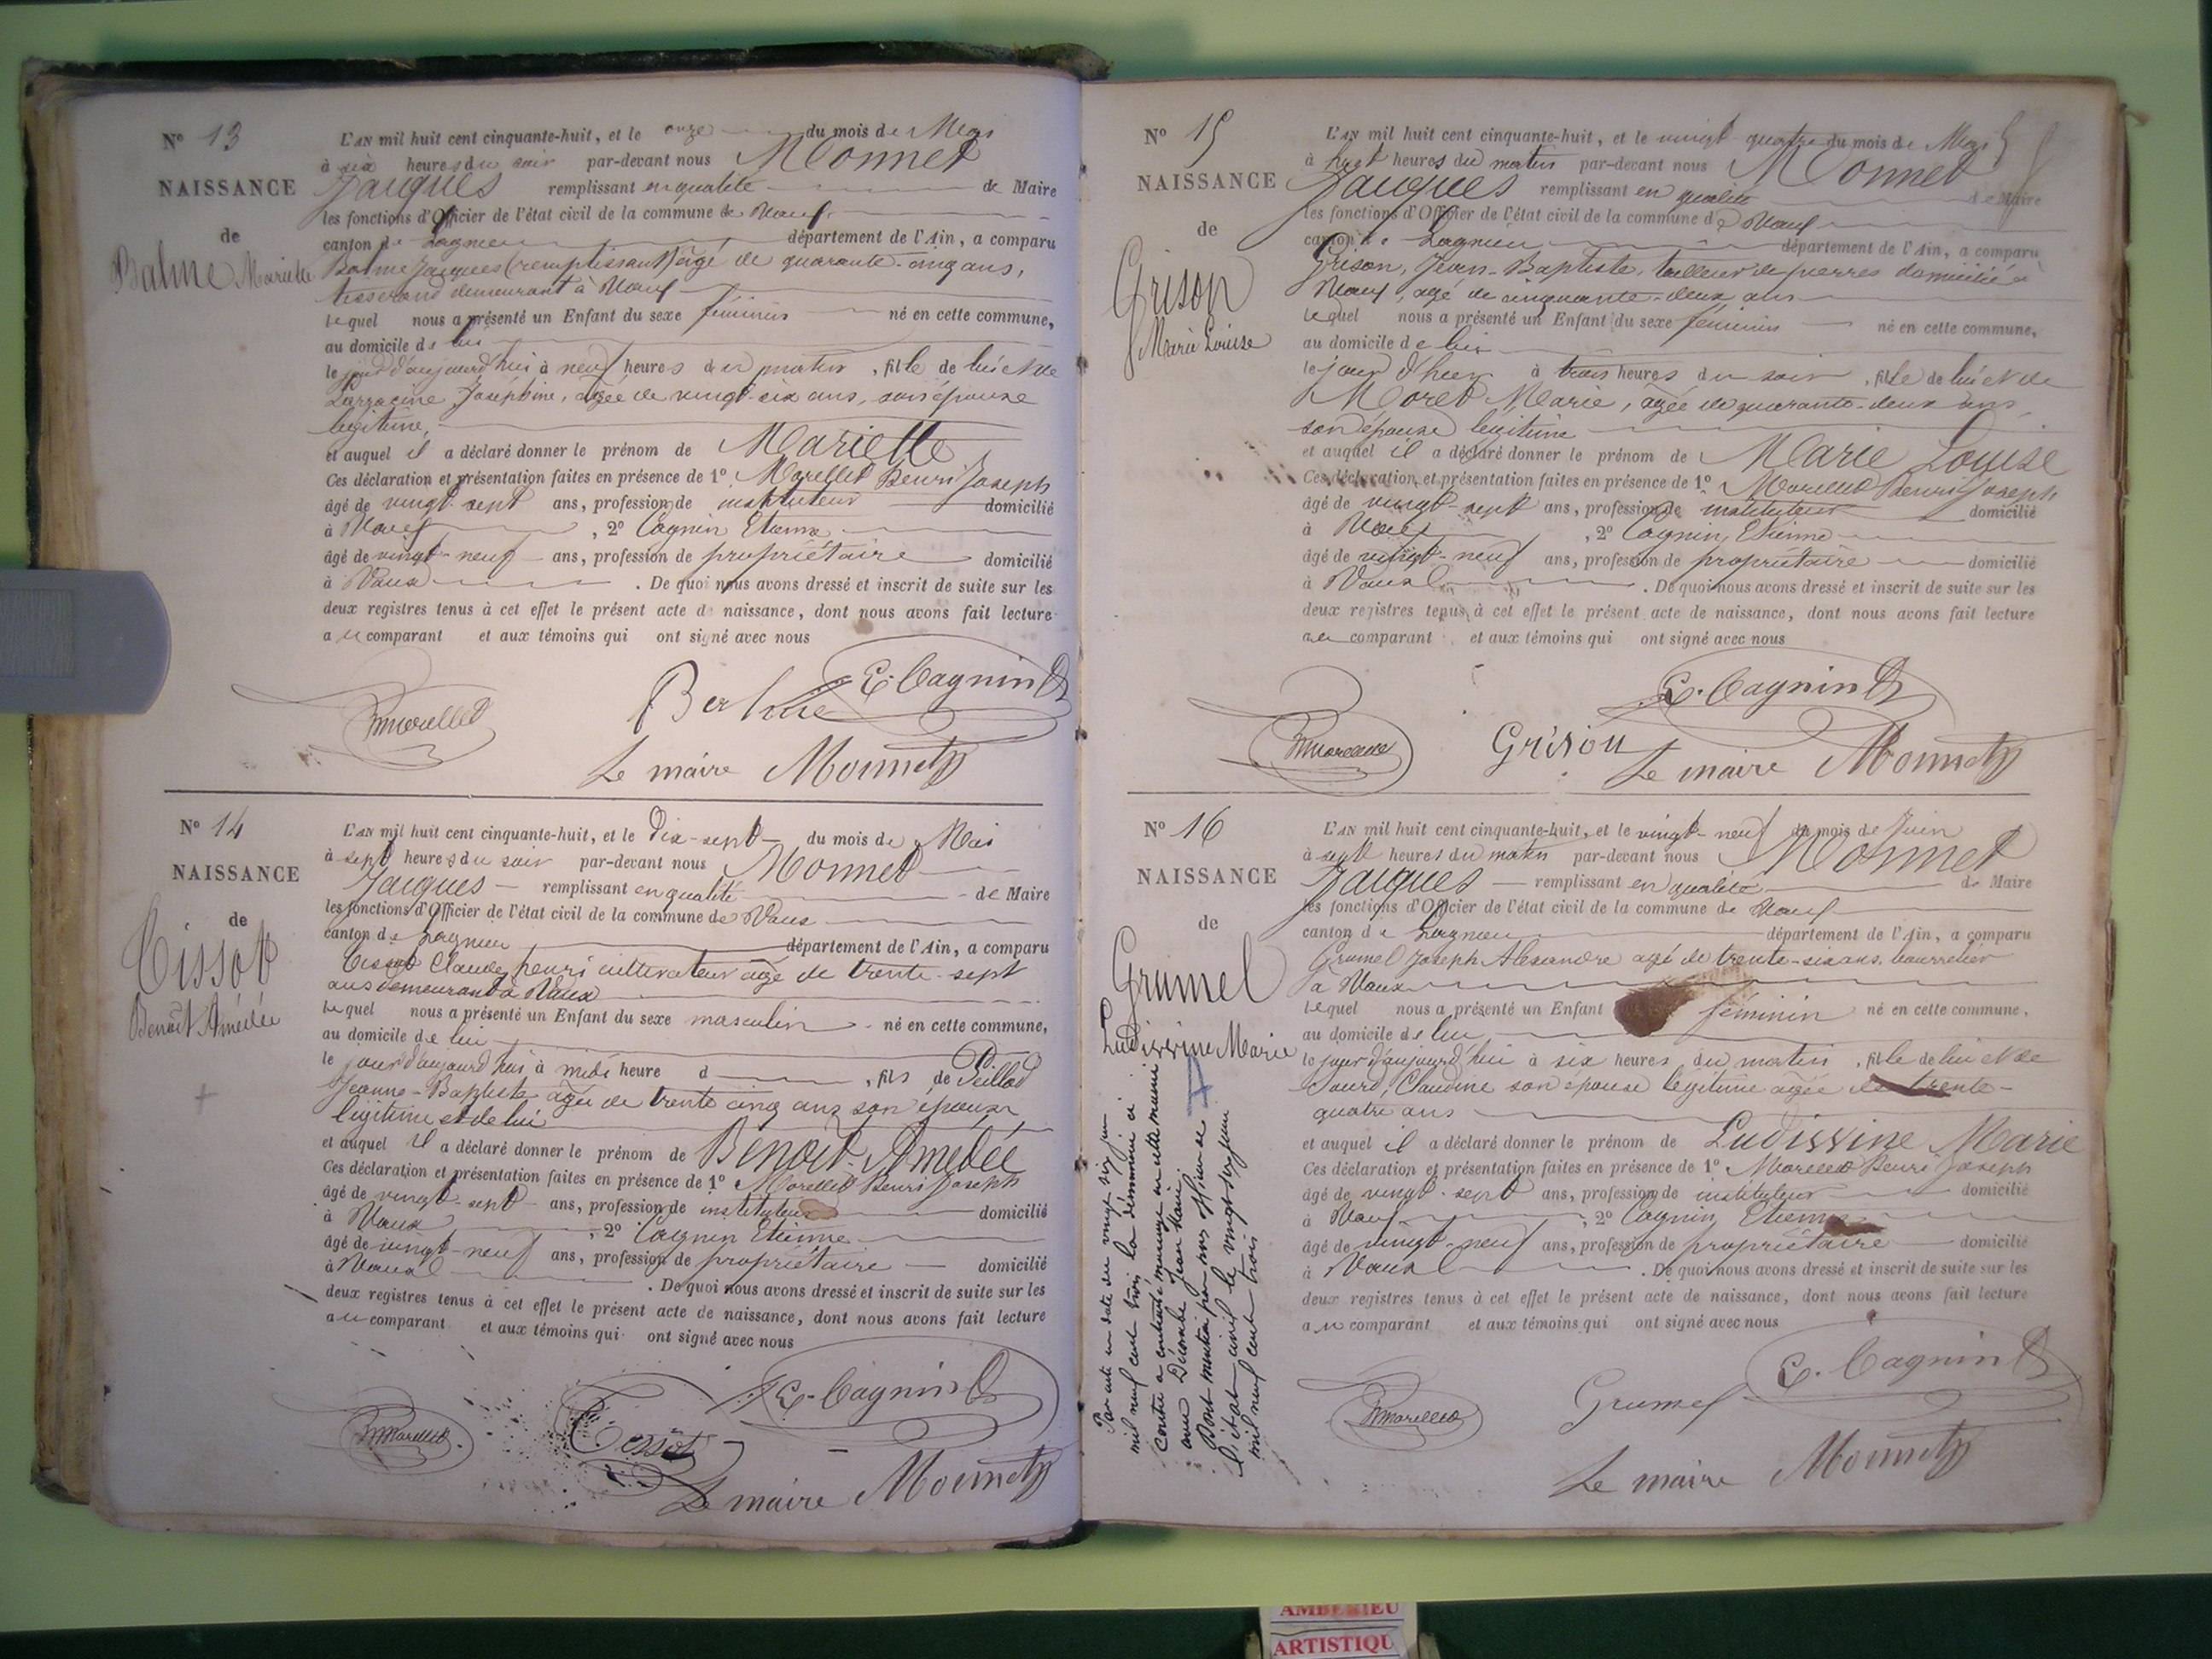 N° 13
NAISSANCE
de
Balme Mariette
L'AN mil huit cent cinquante-huit, et le onze du mois de Mai
à six heures du soir par-devant nous Monnet
Jacques remplissant en qualité de Maire
les fonctions d'Officier de l'état civil de la commune de Vaux
canton de Lagnieu département de l'Ain, a comparu
Balme Jacques (remplissant) âgé de quarante-cinq ans,
tisserand demeurant à Vaux
lequel nous a présenté un Enfant du sexe féminin né en cette commune,
au domicile de lui
le jour d'aujourd'hui à neuf heures du matin, fille de lui et de
Joséphine, âgée de vingt-six ans, son épouse
légitime,
et auquel il a déclaré donner le prénom de Mariette
Ces déclaration et présentation faites en présence de 1° Morellet Henri Joseph
âgé de vingt-sept ans, profession de instituteur domicilié
à Vaux, 2° Cagnin Etienne
âgé de vingt-neuf ans, profession de propriétaire domicilié
à Vaux. De quoi nous avons dressé et inscrit de suite sur les
deux registres tenus à cet effet le présent acte de naissance, dont nous avons fait lecture
au comparant et aux témoins qui ont signé avec nous
E. Cagnin
Hmorellet
Le maire Monnet
N° 14
NAISSANCE
de
Tissot
Benoît Amédée
L'AN mil huit cent cinquante-huit, et le Dix-sept du mois de Mai
à sept heures du soir par-devant nous Monnet
Jacques remplissant en qualité de Maire
les fonctions d'Officier de l'état civil de la commune de Vaux
canton de Lagnieu département de l'Ain, a comparu
Tissot Claude henri cultivateur âgé de trente-sept
ans demeurant à Vaux
lequel nous a présenté un Enfant du sexe masculin né en cette commune,
au domicile de lui
le jour d'aujourd'hui, à midi heure d, fils de Peillod
Jeanne-Baptiste âgée de trente cinq ans son épouse
légitime et de lui
et auquel il a déclaré donner le prénom de Benoit-Amédée
Ces déclaration et présentation faites en présence de 1° Morellet Henri Joseph
âgé de vingt-sept ans, profession de instituteur domicilié
à Vaux, 2° Cagnin Etienne
âgé de vingt-neuf ans, profession de propriétaire domicilié
à Vaux. De quoi nous avons dressé et inscrit de suite sur les
deux registres tenus à cet effet le présent acte de naissance, dont nous avons fait lecture
au comparant et aux témoins qui ont signé avec nous
E. Cagnin
Hmorellet Tissot
Le maire Monnet
N° 15
NAISSANCE
de
Grison
Marie Louise
L'AN mil huit cent cinquante-huit, et le vingt-quatre du mois de Mai
à huit heures du matin par-devant nous Monnet
Jacques remplissant en qualité de Maire
les fonctions d'Officier de l'état civil de la commune de Vaux
canton de Lagnieu département de l'Ain, a comparu
Grison, Jean-Baptiste, tailleur de pierres domicilié à
Vaux, âgé de cinquante-deux ans
lequel nous a présenté un Enfant du sexe féminin né en cette commune,
au domicile de lui
le jour d'hier à trois heures du soir, fille de lui et de
Moret Marie, âgée de quarante-deux ans,
son épouse légitime
et auquel il a déclaré donner le prénom de Marie Louise
Ces déclaration et présentation faites en présence de 1° Morellet Henri Joseph
âgé de vingt-sept ans, profession de instituteur domicilié
à Vaux, 2° Cagnin, Etienne
âgé de vingt-neuf ans, profession de propriétaire domicilié
à Vaux. De quoi nous avons dressé et inscrit de suite sur les
deux registres tenus à cet effet le présent acte de naissance, dont nous avons fait lecture
au comparant et aux témoins qui ont signé avec nous
E. Cagnin
Hmorellet Grison
Le maire Monnet
N° 16
NAISSANCE
de
Grumel
Ludivvine Marie
Par acte en date du vingt six juin
mil neuf cent trois la dénommée ci
contre a contracté mariage en cette mairie
avec Décombe Jean Marie
Dont mention par nous officier de
l'état civil le vingt sept juin
mil neuf cent trois
L'AN mil huit cent cinquante-huit, et le vingt-neuf du mois de Juin
à sept heures du matin par-devant nous Monnet
Jacques remplissant en qualité de Maire
les fonctions d'Officier de l'état civil de la commune de Vaux
canton de Lagnieu département de l'Ain, a comparu
Grumel Joseph Alexandre agé de trente-six ans, bourrelier
à Vaux
lequel nous a présenté un Enfant féminin né en cette commune,
au domicile de lui
le jour d'aujourd'hui à six heures du matin, fille de lui et de
Claudine son épouse légitime agée de trente-
quatre ans
et auquel il a déclaré donner le prénom de Ludivvine Marie
Ces déclaration et présentation faites en présence de 1° Morellet Henri Joseph
âgé de vingt-sept ans, profession de instituteur domicilié
à Vaux, 2° Cagnin, Etienne
âgé de vingt-neuf ans, profession de propriétaire domicilié
à Vaux. De quoi nous avons dressé et inscrit de suite sur les
deux registres tenus à cet effet le présent acte de naissance, dont nous avons fait lecture
au comparant et aux témoins qui ont signé avec nous
E. Cagnin
Hmorellet Grumel
Le maire Monnet
AMBERIEU
ARTISTIQU